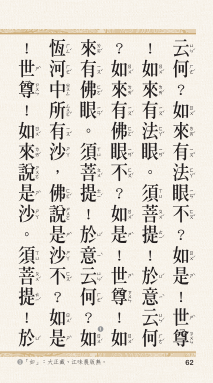 云何？如來有法眼不？如是！世尊
！如來有法眼。須菩提！於意云何
？如來有佛眼不？如是！世尊！如
來有佛眼。須菩提！於意云何？如
恆河中所有沙，佛說是沙不？如是
！世尊！如來說是沙。須菩提！於
62